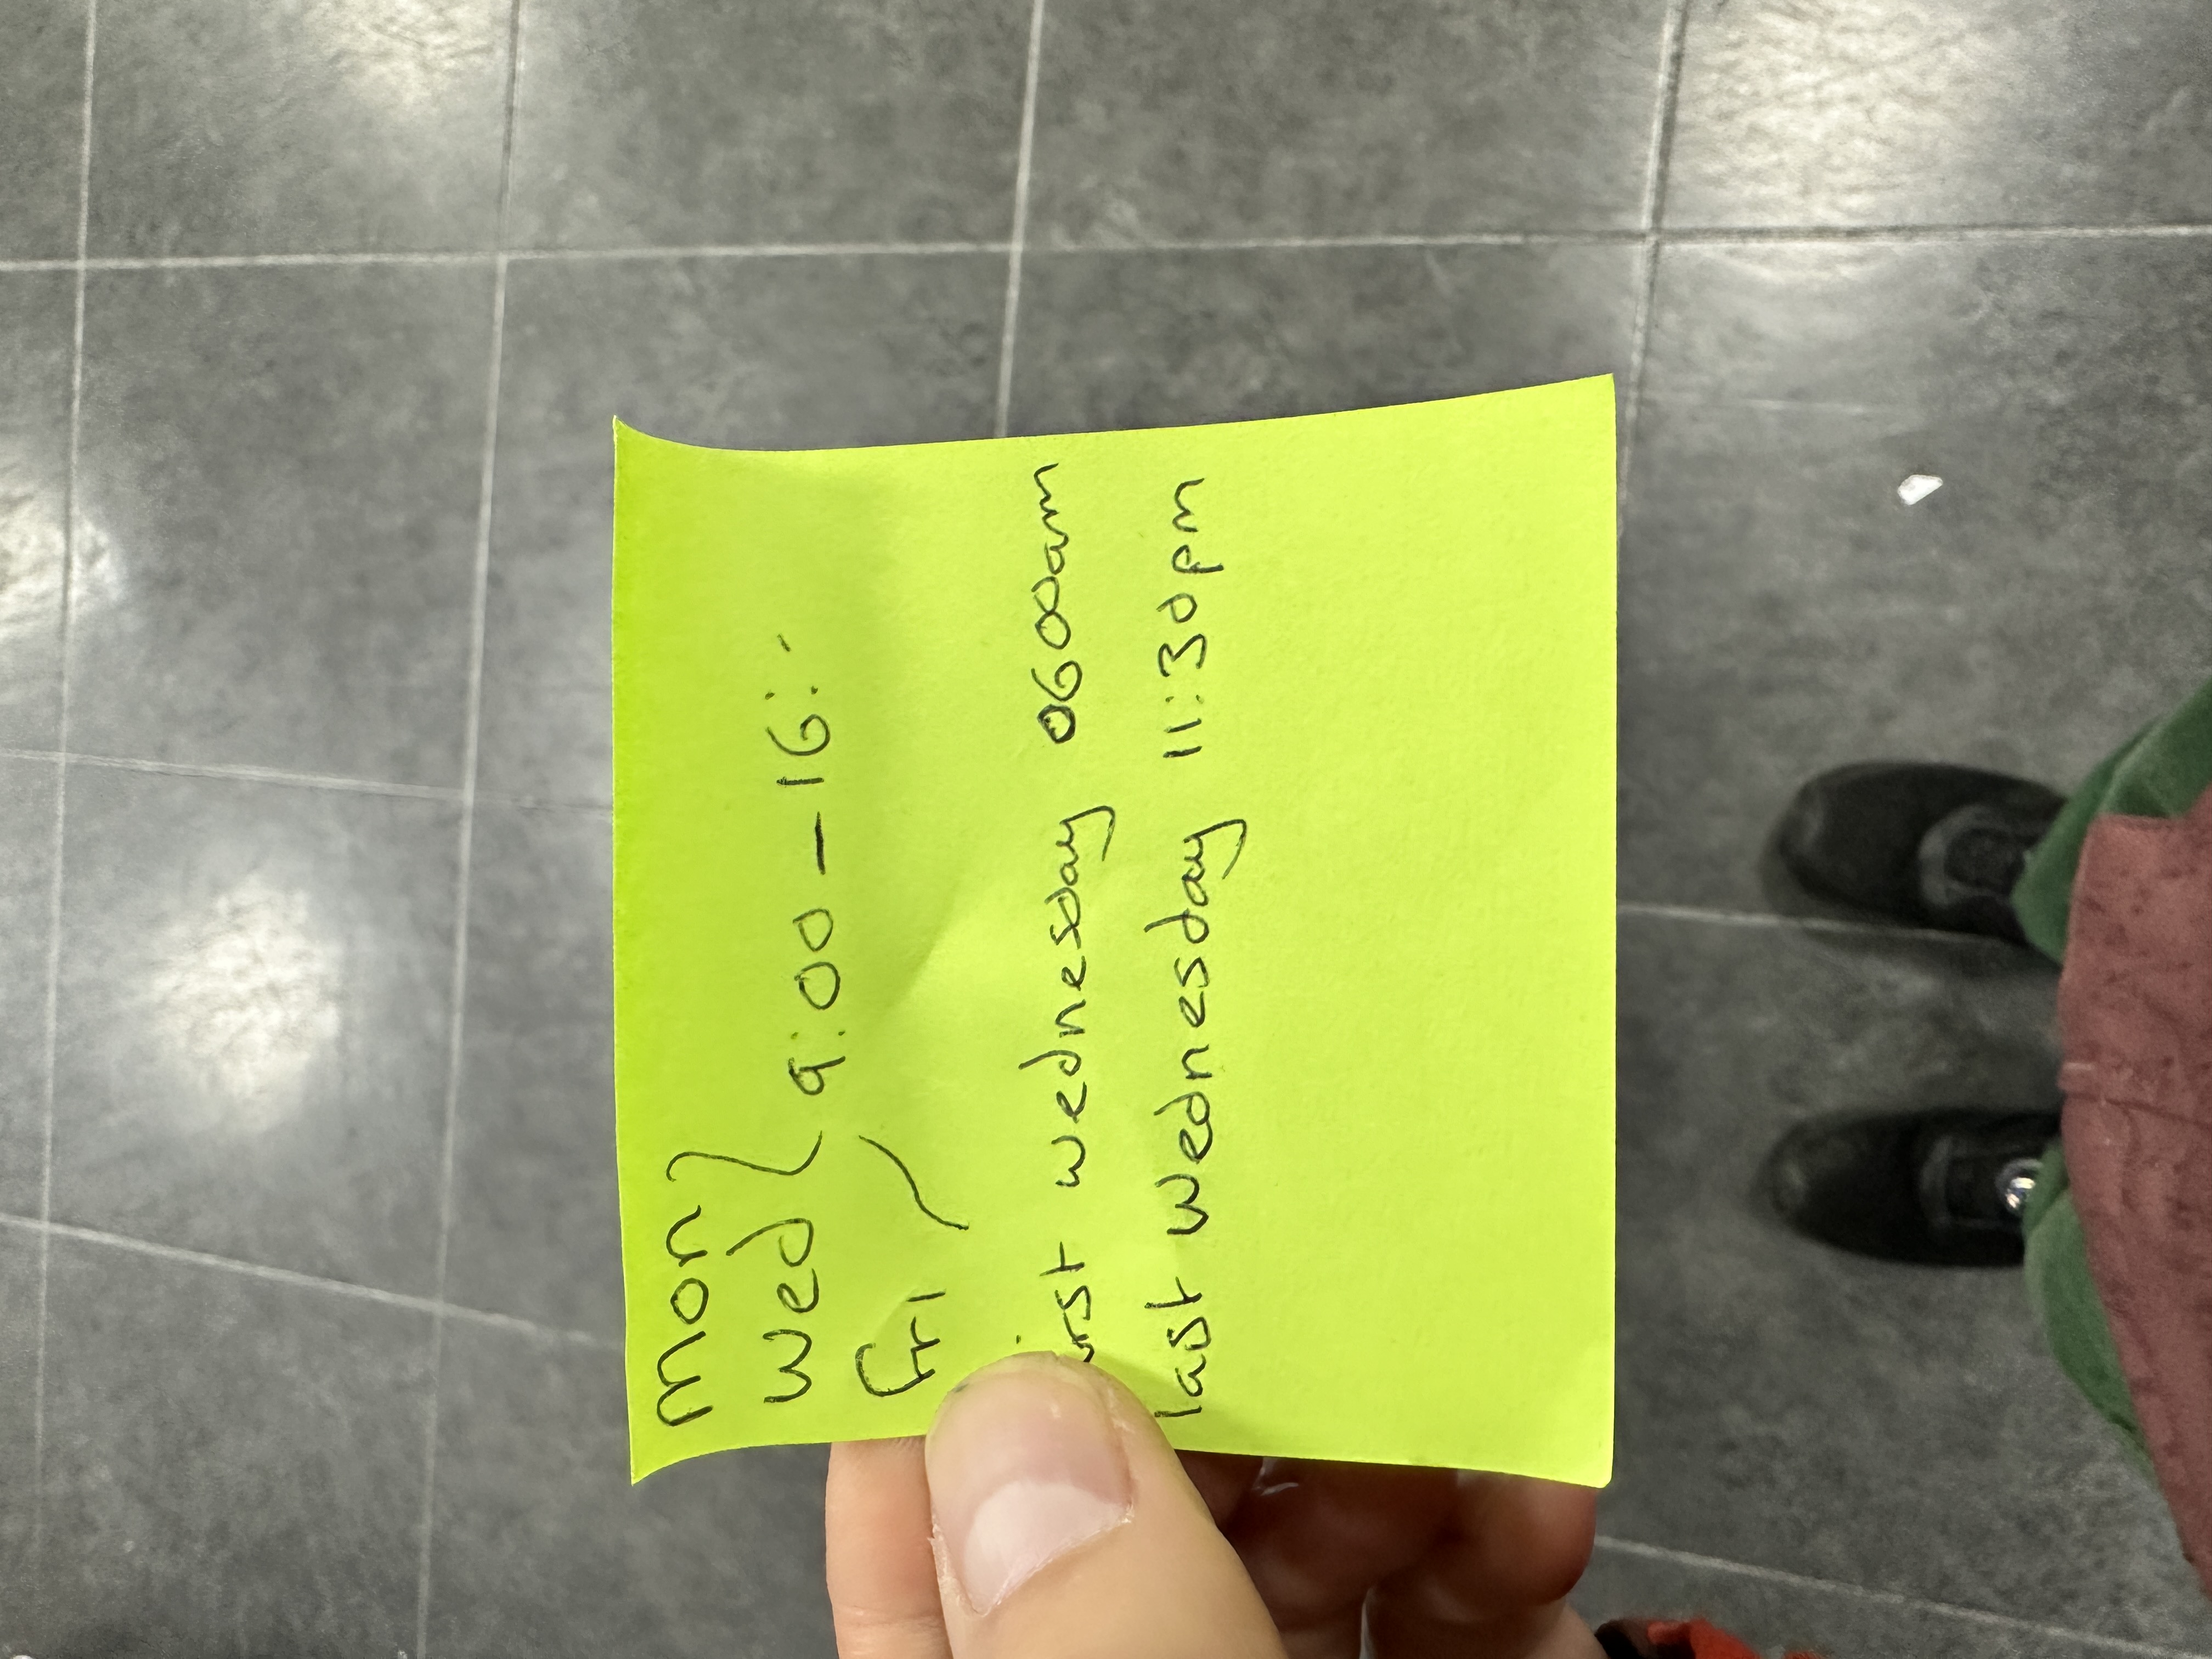 mon
wed } 9:00-16:-
fri
wednesday 0600am
last wednesday 11:30pm